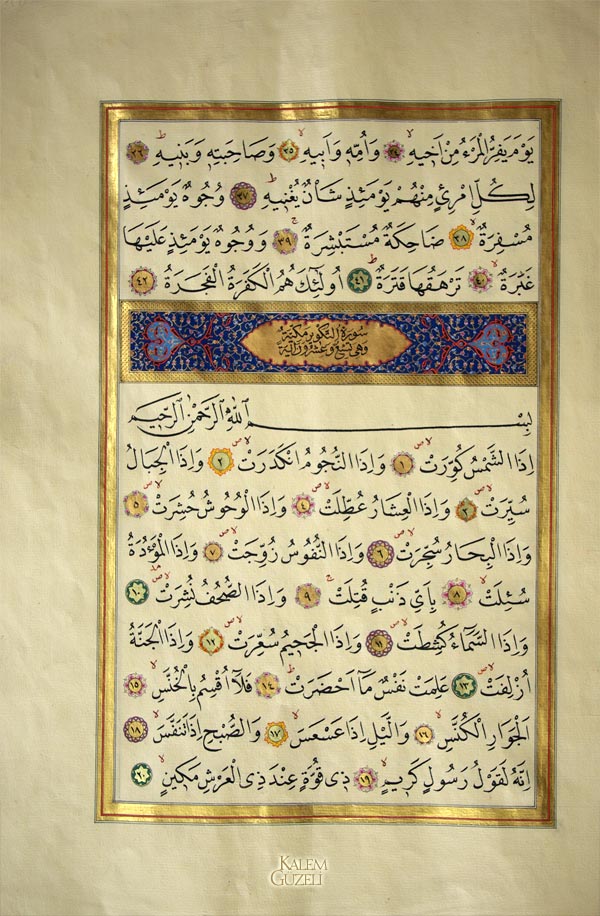 يَوْمَ يَفِرُّ الْمَرْءُ مِنْ اَخٖيهِۙ ﴿٣٤﴾ وَاُمِّهٖ وَاَبٖيهِۙ ﴿٣٥﴾ وَصَاحِبَتِهٖ وَبَنٖيهِۜ ﴿٣٦﴾
لِكُلِّ امْرِئٍ مِنْهُمْ يَوْمَئِذٍ شَاْنٌ يُغْنٖيهِۜ ﴿٣٧﴾ وُجُوهٌ يَوْمَئِذٍ
مُسْفِرَةٌۙ ﴿٣٨﴾ ضَاحِكَةٌ مُسْتَبْشِرَةٌۚ ﴿٣٩﴾ وَوُجُوهٌ يَوْمَئِذٍ عَلَيْهَا
غَبَرَةٌۙ ﴿٤٠﴾ تَرْهَقُهَا قَتَرَةٌۜ ﴿٤١﴾ اُولٰٓئِكَ هُمُ الْكَفَرَةُ الْفَجَرَةُ ﴿٤٢﴾
سورة التكوير مكية
وهى تسع وعشرون اية
بِسْمِ اللّٰهِ الرَّحْمٰنِ الرَّحٖيمِ
اِذَا الشَّمْسُ كُوِّرَتْۙ ﴿١﴾ وَاِذَا النُّجُومُ انْكَدَرَتْۙ ﴿٢﴾ وَاِذَا الْجِبَالُ
سُيِّرَتْۙ ﴿٣﴾ وَاِذَا الْعِشَارُ عُطِّلَتْۙ ﴿٤﴾ وَاِذَا الْوُحُوشُ حُشِرَتْۙ ﴿٥﴾
وَاِذَا الْبِحَارُ سُجِّرَتْۙ ﴿٦﴾ وَاِذَا النُّفُوسُ زُوِّجَتْۙ ﴿٧﴾ وَاِذَا الْمَوْءُدَةُ
سُئِلَتْۙ ﴿٨﴾ بِاَيِّ ذَنْبٍ قُتِلَتْۚ ﴿٩﴾ وَاِذَا الصُّحُفُ نُشِرَتْۙ ﴿١٠﴾
وَاِذَا السَّمَٓاءُ كُشِطَتْۙ ﴿١١﴾ وَاِذَا الْجَحٖيمُ سُعِّرَتْۙ ﴿١٢﴾ وَاِذَا الْجَنَّةُ
اُزْلِفَتْۙ ﴿١٣﴾ عَلِمَتْ نَفْسٌ مَٓا اَحْضَرَتْۜ ﴿١٤﴾ فَلَٓا اُقْسِمُ بِالْخُنَّسِۙ ﴿١٥﴾
اَلْجَوَارِ الْكُنَّسِۙ ﴿١٦﴾ وَالَّيْلِ اِذَا عَسْعَسَۙ ﴿١٧﴾ وَالصُّبْحِ اِذَا تَنَفَّسَۙ ﴿١٨﴾
اِنَّهُ لَقَوْلُ رَسُولٍ كَرٖيمٍۙ ﴿١٩﴾ ذٖى قُوَّةٍ عِنْدَ ذِى الْعَرْشِ مَكٖينٍۙ ﴿٢٠﴾
KALEM
GUZELI